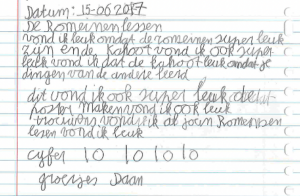 Datum: 15-06 2017
De Romeinen lessen
vond ik leuk omdat de romeinen super leuk
zijn en de kahoot vond ik ook super
leuk vond ik dat de kahoot leuk omdat je
dingen van de andere leerd
dit vond ik ook super leuk de
poster maken vond ik ook leuk
trouwens vond ik al jouw Romeinen
lessen vond ik leuk
cyfer 10 10 10 10
groetjes Daan